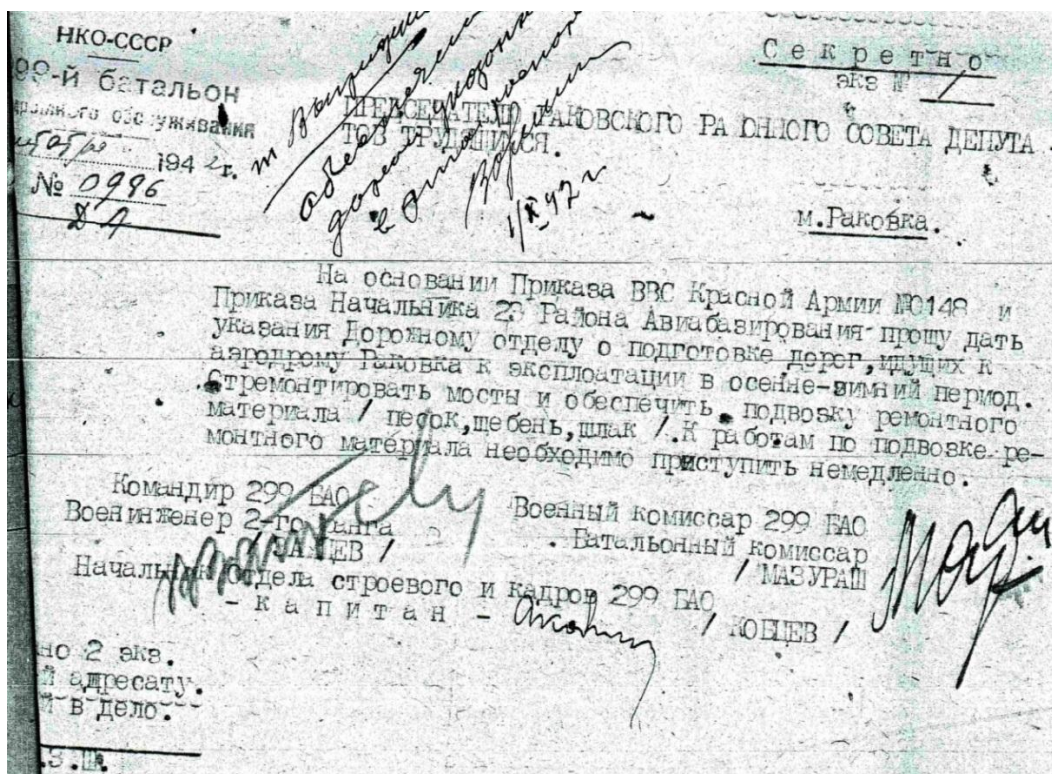 НКО-СССР
99-й батальон
обслуживания
1942г.
№ 0996
Секретно
экз № 1
ПРЕДСЕДАТЕЛЮ РАКОВСКОГО РАЙОННОГО СОВЕТА ДЕПУТА
ТОВ ТРУДЯЩИХСЯ.
1/X 42 г
м.Раковка.
На основании Приказа ВВС Красной Армии №0148 и
Приказа Начальника 23 Района Авиабазирования прошу дать
указания Дорожному отделу о подготовке дорог,идущих к
аэродрому Раковка к эксплоатации в осенне-зимний период.
Отремонтировать мосты и обеспечить подвозку ремонтного
материала / песок,щебень,шлак /.К работам по подвозке ре-
монтного материала необходимо приступить немедленно.
Командир 299 БАО
Военинженер 2-го ранга
Военный комиссар 299 БАО
Батальонный комиссар
/ МАЗУРАШ
Начальник отдела строевого и кадров 299 БАО
- к а п и т а н -
/ КОБЦЕВ /
но 2 экз.
й адресату.
й в дело.
.З.Ш.